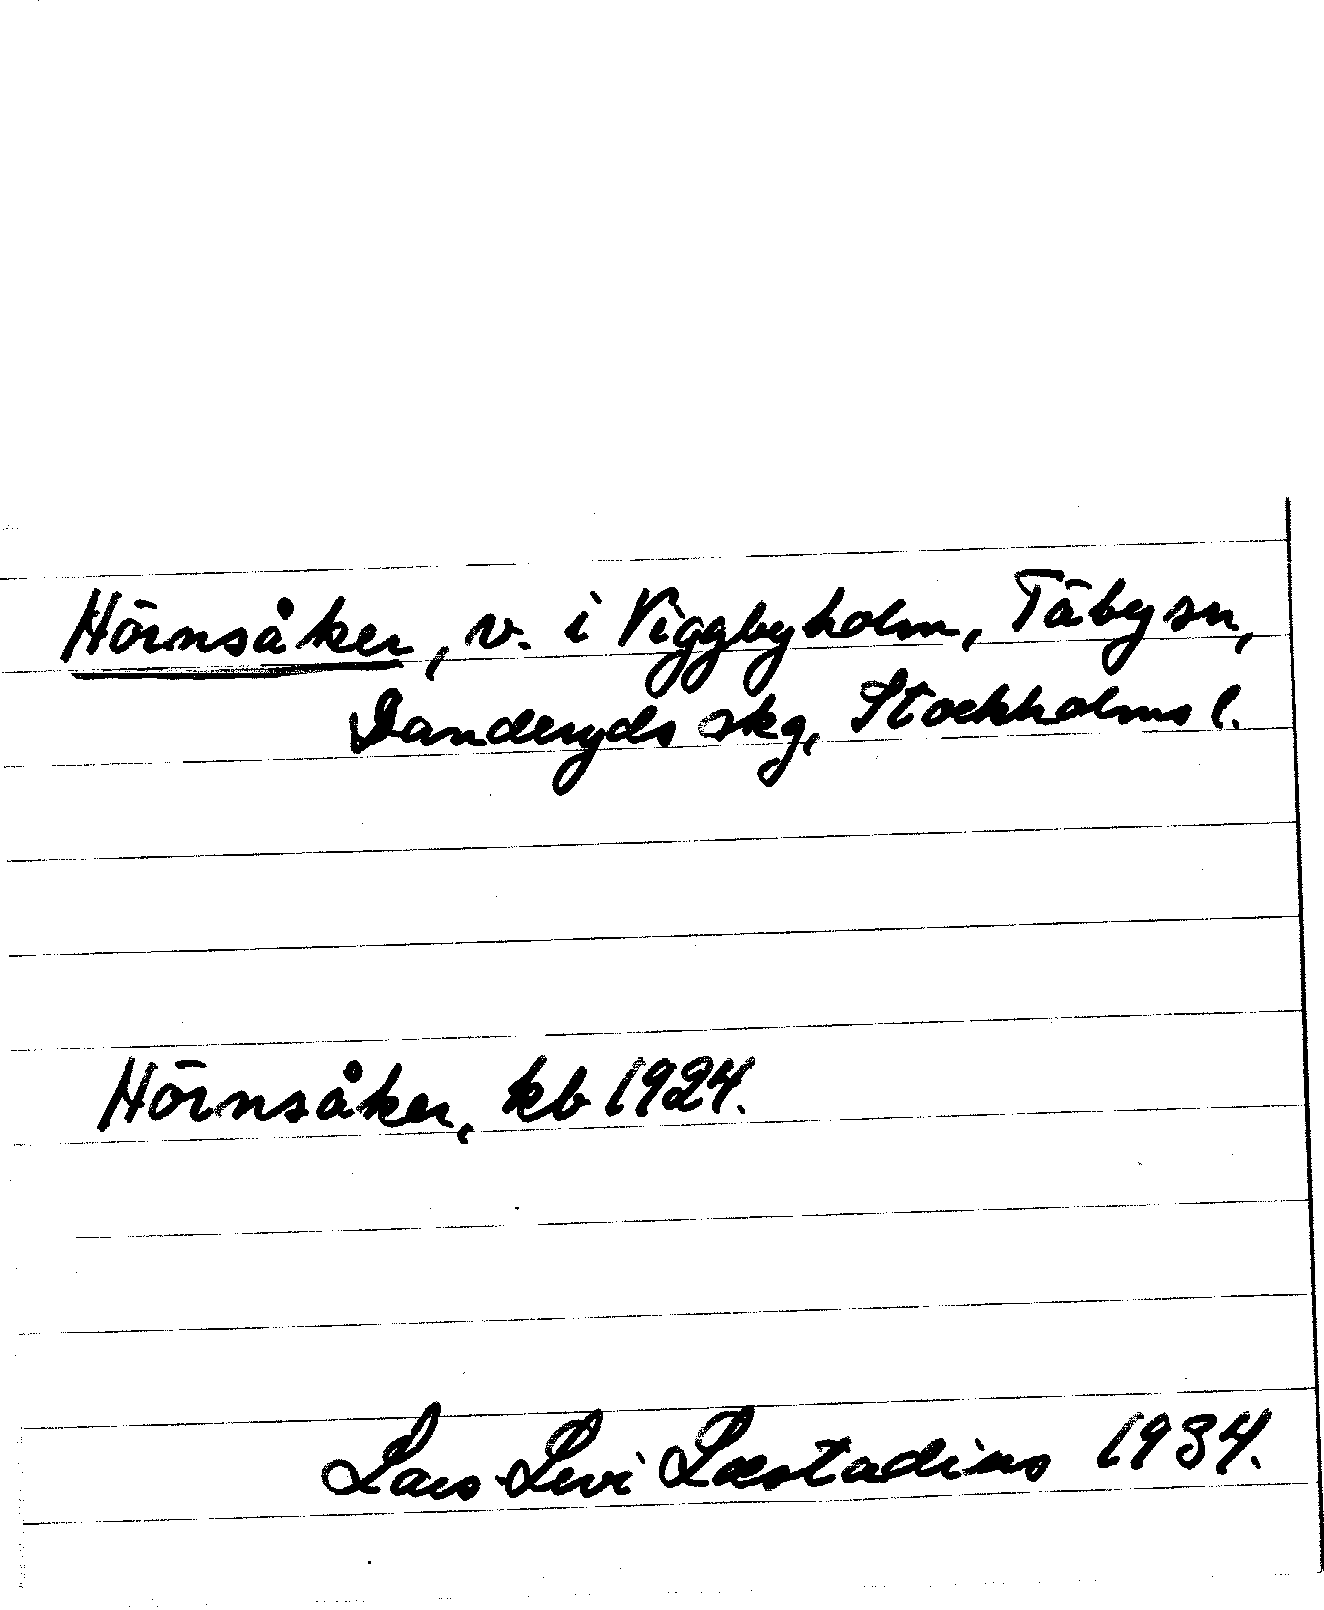 Hörnsåker, v. i Viggbyholm, Täby sn,
Danderyds skg, Stockholms l.
Hörnsåker, kb 1924.
Lars Levi Læstadius 1934.